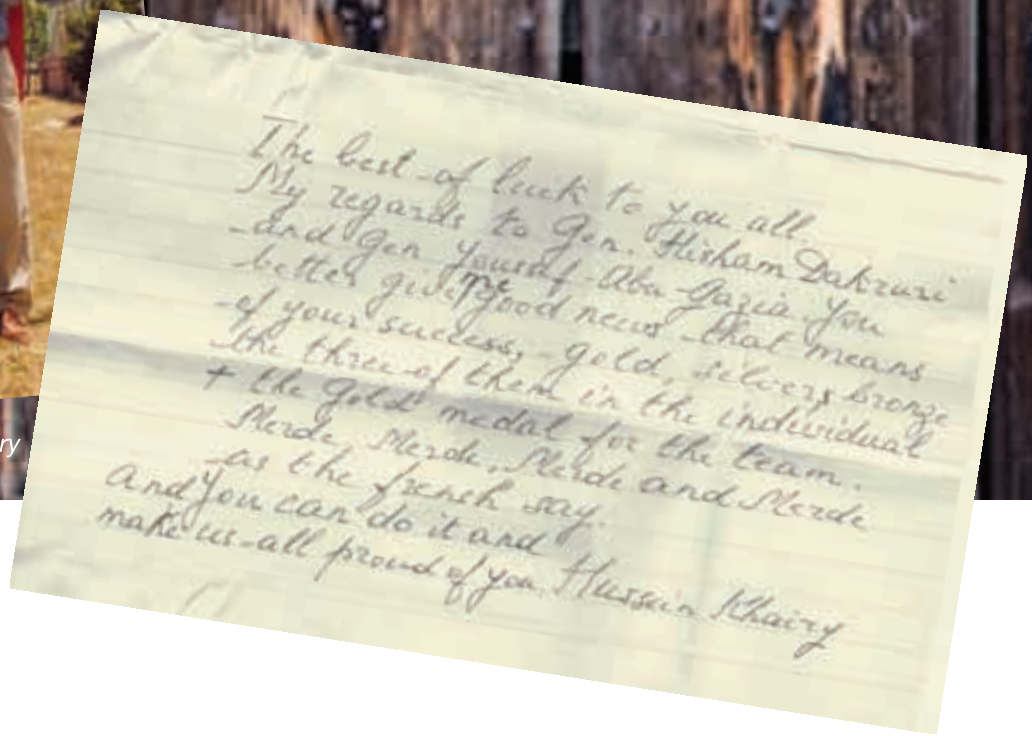 The best of luck to you all.
My regards to Gen. Hisham Dakruri
and Gen Youssef Abu Gazia. You
better give me good news that means
of your success, gold, silver & bronze
the three of them in the individual
+ the gold medal for the team.
Merde, Merde, Merde and Merde
as the french say.
And you can do it and
make us all proud of you. Hussein Khairy
ry